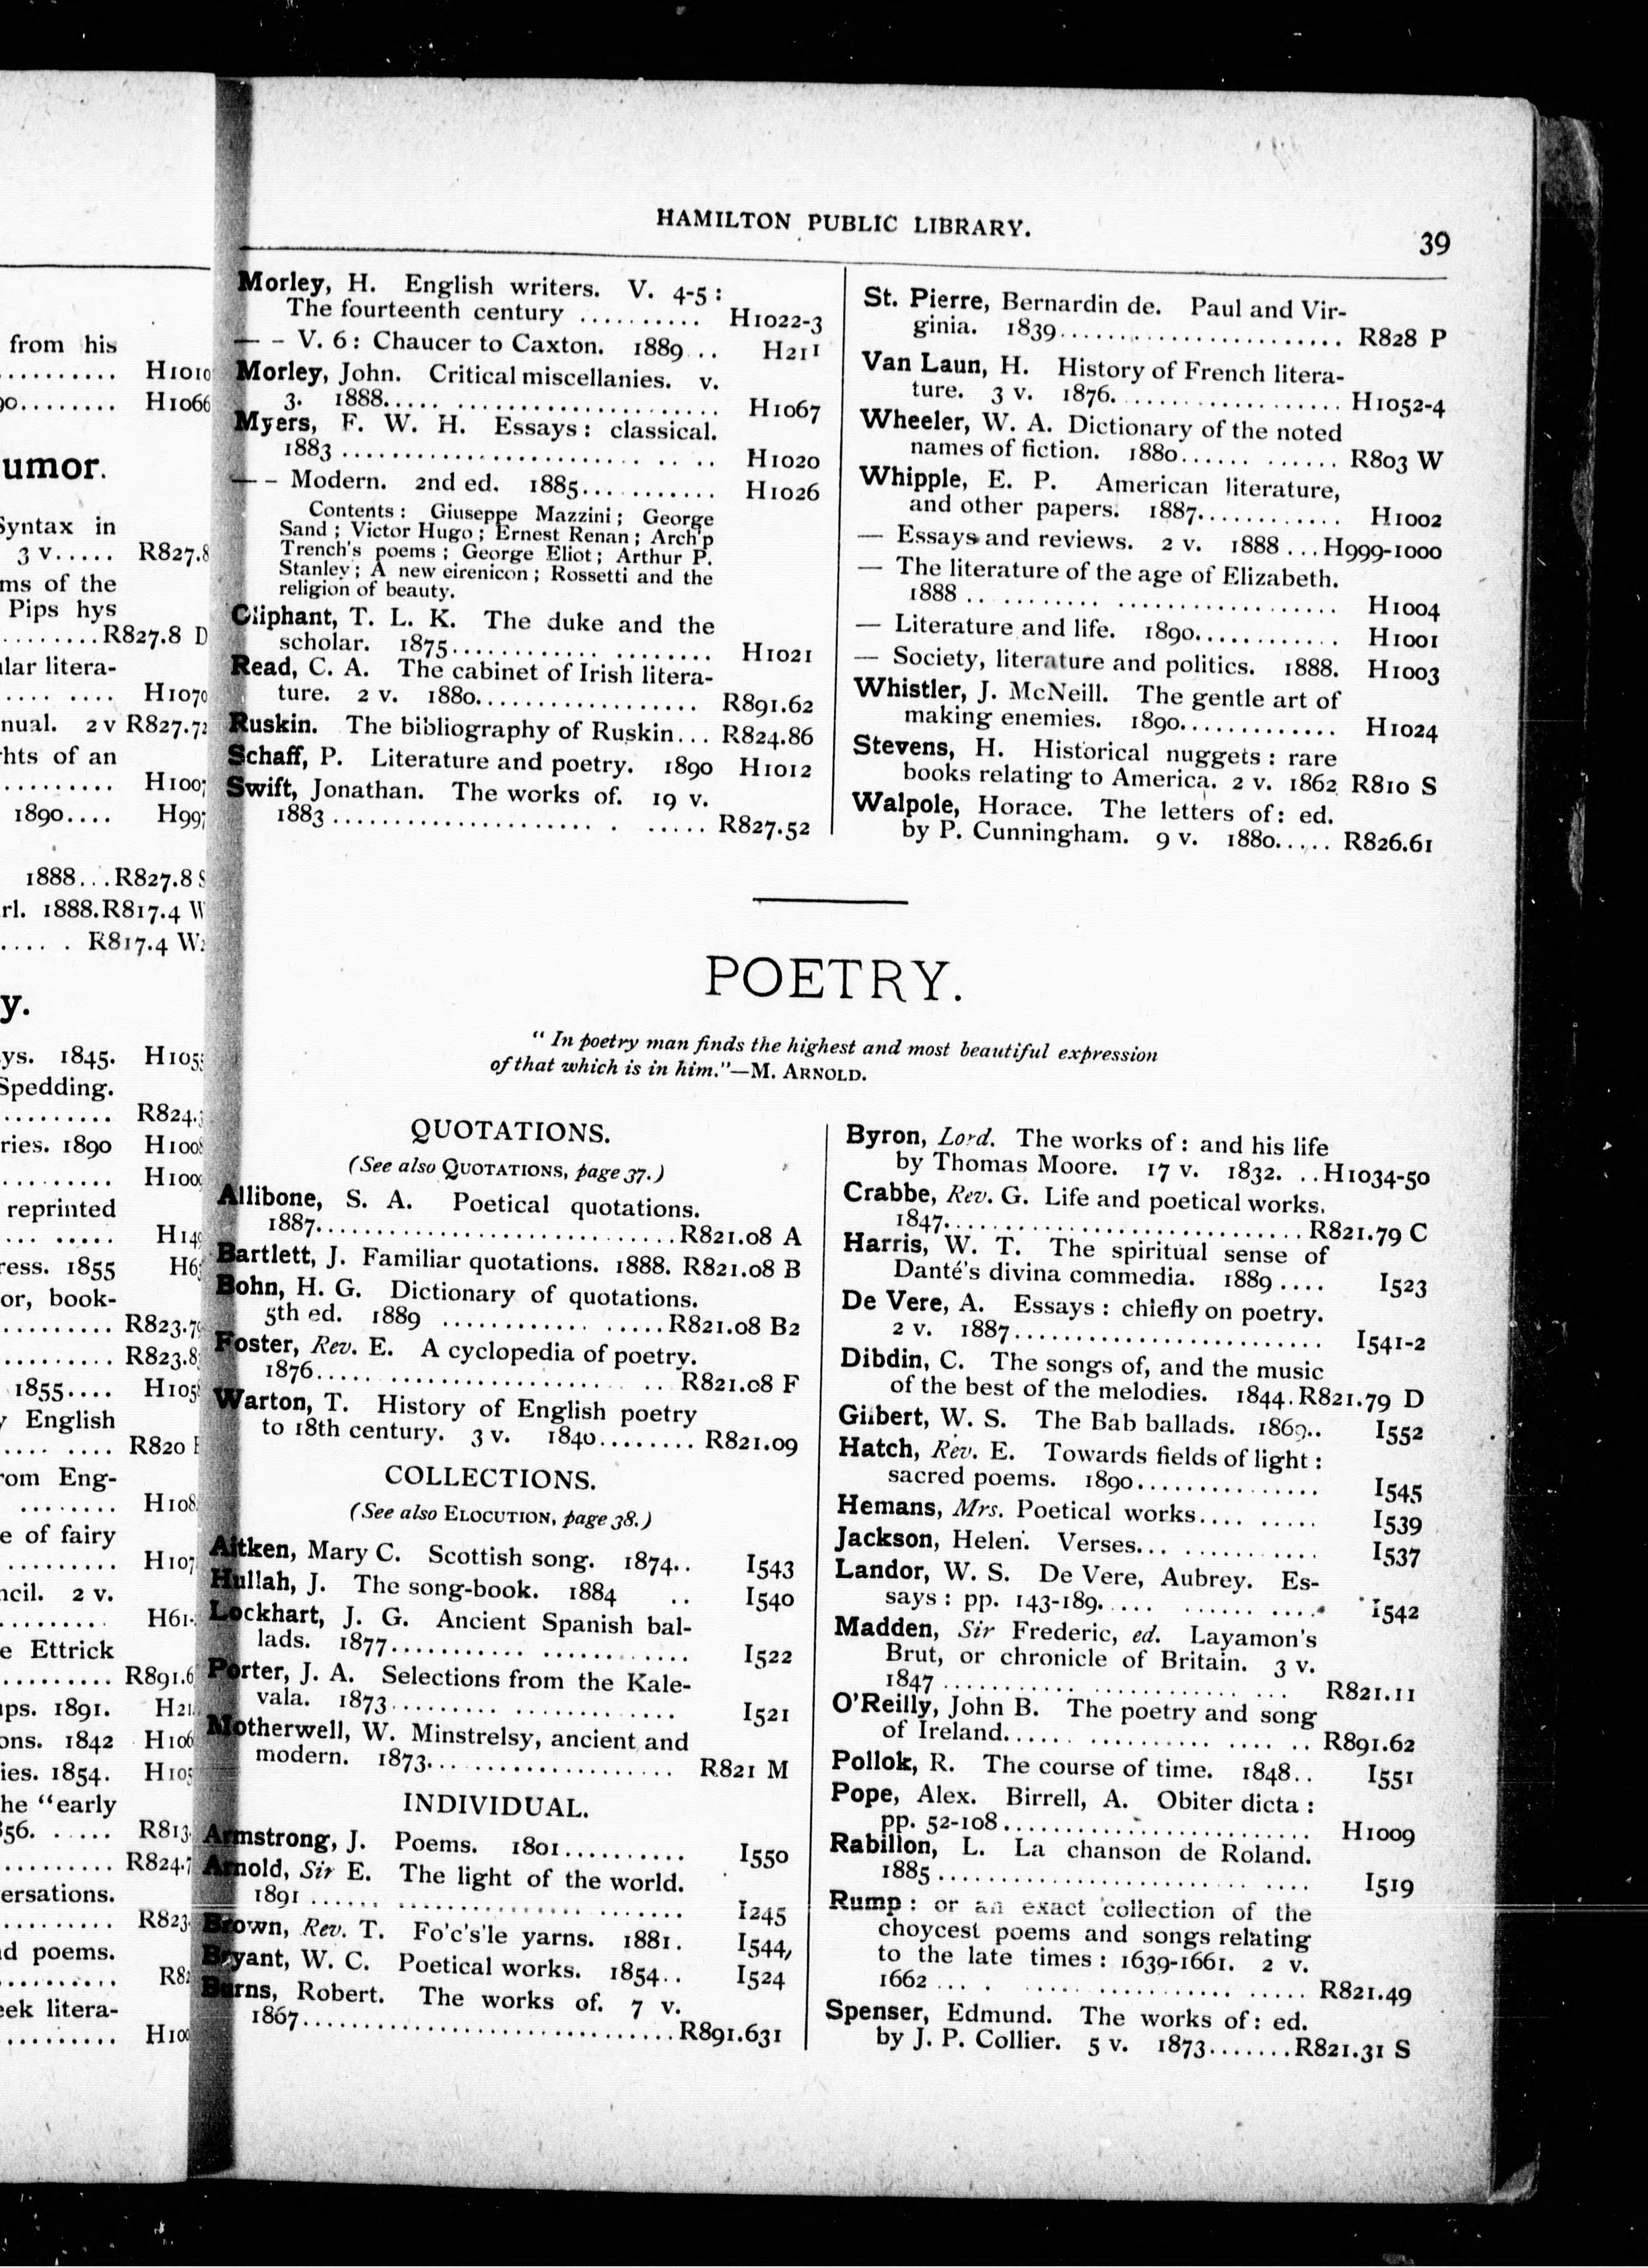 from his
.......... H1010
90........ H1066
umor.
Syntax in
3 v..... R827.8
ms of the
Pips hys
........R827.8 D
lar litera-
.... .... H1070
nual. 2 v R827.72
hts of an
......... H1007
1890.... H997
1888...R827.8 S
rl. 1888.R817.4 W
..... . R817.4 W
y.
ys. 1845. H105
Spedding.
.......... R824.
ries. 1890 H100
.......... H100
reprinted
... ..... H14
ress. 1855 H6
or, book-
.......... R823.7
.......... R823.8
1855.... H105
English
.... .... R820
rom Eng-
........ H108
e of fairy
.......... H107
ncil. 2 v.
.......... H61
e Ettrick
.......... R891.6
ups. 1891. H21
ons. 1842 H106
ies. 1854. H105
he "early
856. ..... R813
.......... R824.7
ersations.
.......... R823
d poems.
.......... R82
eek litera-
.......... H100
HAMILTON PUBLIC LIBRARY.
39
Morley, H. English writers. V. 4-5 :
The fourteenth century .......... H1022-3
— – V. 6 : Chaucer to Caxton. 1889 .. H211
Morley, John. Critical miscellanies. v.
3. 1888..... ...................... H1067
Myers, F. W. H. Essays : classical.
1883 ........................... .. .. H1020
— – Modern. 2nd ed. 1885............ H1026
Contents : Giuseppe Mazzini ; George
Sand ; Victor Hugo ; Ernest Renan ; Arch'p
Trench's poems ; George Eliot ; Arthur P.
Stanley ; A new eirenicon ; Rossetti and the
religion of beauty.
Oliphant, T. L. K. The duke and the
scholar. 1875............. ......... H1021
Read, C. A. The cabinet of Irish litera-
ture. 2 v. 1880.................. R891.62
Ruskin. The bibliography of Ruskin... R824.86
Schaff, P. Literature and poetry. 1890 H1012
Swift, Jonathan. The works of. 19 v.
1883 ..................... . ...... R827.52
St. Pierre, Bernardin de. Paul and Vir-
ginia. 1839........................ R828 P
Van Laun, H. History of French litera-
ture. 3 v. 1876.................... H1052-4
Wheeler, W. A. Dictionary of the noted
names of fiction. 1880...... ....... R803 W
Whipple, E. P. American literature,
and other papers. 1887............. H1002
— Essays and reviews. 2 v. 1888 ...H999-1000
— The literature of the age of Elizabeth.
1888 .. .......... .................... H1004
— Literature and life. 1890............ H1001
— Society, literature and politics. 1888. H1003
Whistler, J. McNeill. The gentle art of
making enemies. 1890............. H1024
Stevens, H. Historical nuggets : rare
books relating to America. 2 v. 1862 R810 S
Walpole, Horace. The letters of : ed.
by P. Cunningham. 9 v. 1880..... R826.61
POETRY.
" In poetry man finds the highest and most beautiful expression
of that which is in him."—M. ARNOLD.
QUOTATIONS.
(See also QUOTATIONS, page 37.)
Allibone, S. A. Poetical quotations.
1887.................................R821.08 A
Bartlett, J. Familiar quotations. 1888. R821.08 B
Bohn, H. G. Dictionary of quotations.
5th ed. 1889 ............. ......R821.08 B2
Foster, Rev. E. A cyclopedia of poetry.
1876..... ...................... .. R821.08 F
Warton, T. History of English poetry
to 18th century. 3 v. 1840........ R821.09
COLLECTIONS.
(See also ELOCUTION, page 38.)
Aitken, Mary C. Scottish song. 1874.. I543
Hullah, J. The song-book. 1884 .. I540
Lockhart, J. G. Ancient Spanish bal-
lads. 1877............ ............. I522
Porter, J. A. Selections from the Kale-
vala. 1873.......... .............. I521
Motherwell, W. Minstrelsy, ancient and
modern. 1873....................... R821 M
INDIVIDUAL.
Armstrong, J. Poems. 1801........... I550
Arnold, Sir E. The light of the world.
1891 ...... ......................... I245
Brown, Rev. T. Fo'c's'le yarns. 1881. I544,
Bryant, W. C. Poetical works. 1854.. I524
Burns, Robert. The works of. 7 v.
1867..................................R891.631
Byron, Lord. The works of : and his life
by Thomas Moore. 17 v. 1832. ..H1034-50
Crabbe, Rev. G. Life and poetical works.
1847................................ R821.79 C
Harris, W. T. The spiritual sense of
Danté's divina commedia. 1889 .... I523
De Vere, A. Essays : chiefly on poetry.
2 v. 1887............................. I541-2
Dibdin, C. The songs of, and the music
of the best of the melodies. 1844. R821.79 D
Gilbert, W. S. The Bab ballads. 1869.. I552
Hatch, Rev. E. Towards fields of light :
sacred poems. 1890................ I545
Hemans, Mrs. Poetical works.... ..... I539
Jackson, Helen. Verses... ............ I537
Landor, W. S. De Vere, Aubrey. Es-
says : pp. 143-189..... ...... ..... I542
Madden, Sir Frederic, ed. Layamon's
Brut, or chronicle of Britain. 3 v.
1847 ........................... ... R821.11
O'Reilly, John B. The poetry and song
of Ireland...... ........... .... .. R891.62
Pollok, R. The course of time. 1848.. I551
Pope, Alex. Birrell, A. Obiter dicta :
pp. 52-108......................... H1009
Rabillon, L. La chanson de Roland.
1885 .......................... .... I519
Rump : or an exact collection of the
choycest poems and songs relating
to the late times : 1639-1661. 2 v.
1662 ... . ................... ..... R821.49
Spenser, Edmund. The works of : ed.
by J. P. Collier. 5 v. 1873.......R821.31 S